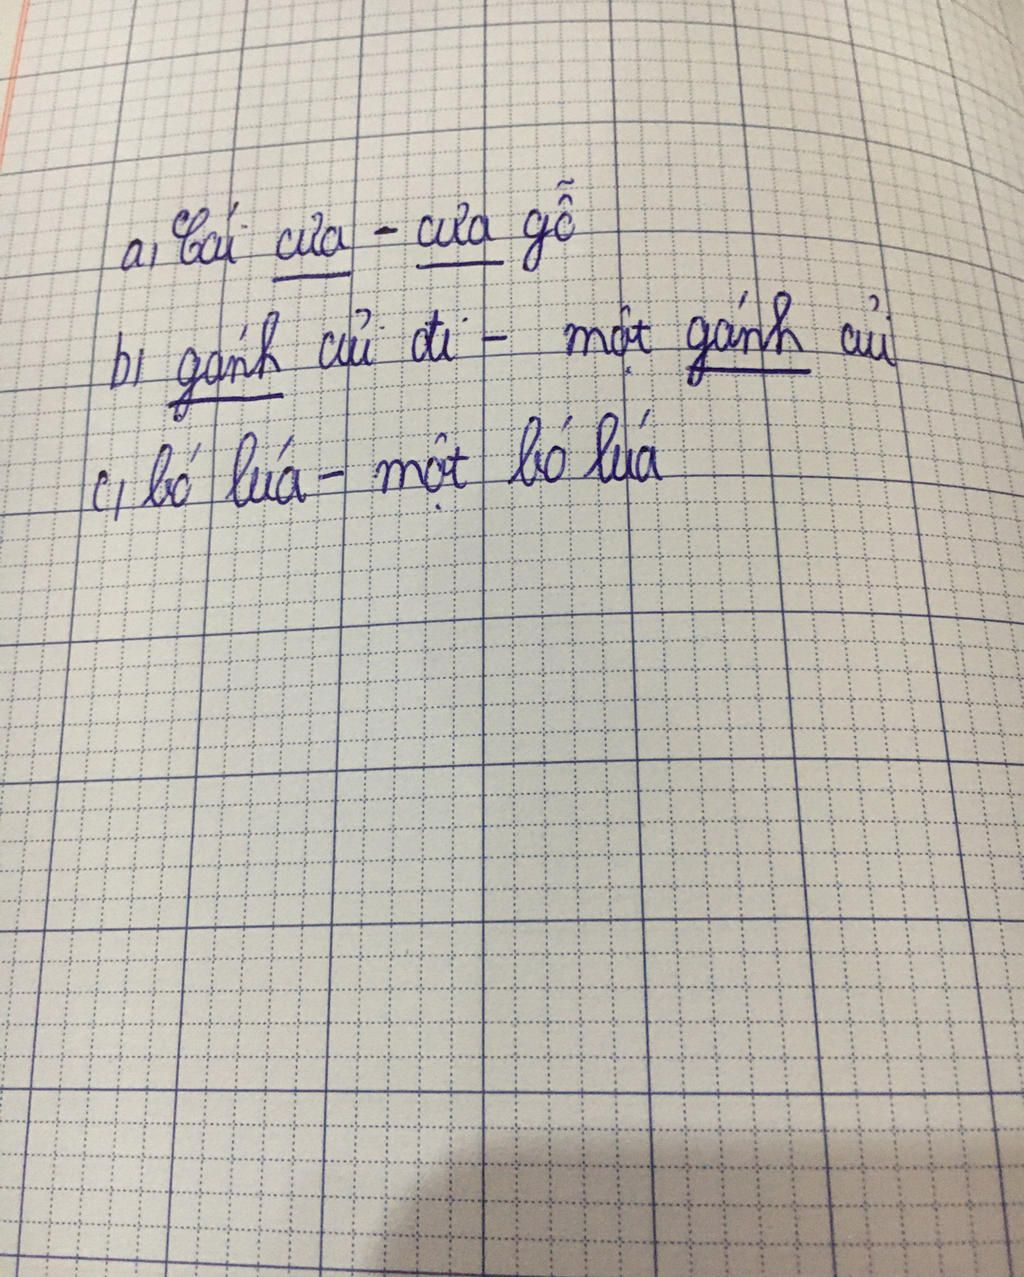 a, Cái cưa - cưa gỗ
b, gánh củi đi - một gánh củi
c, bó lúa - một bó lúa